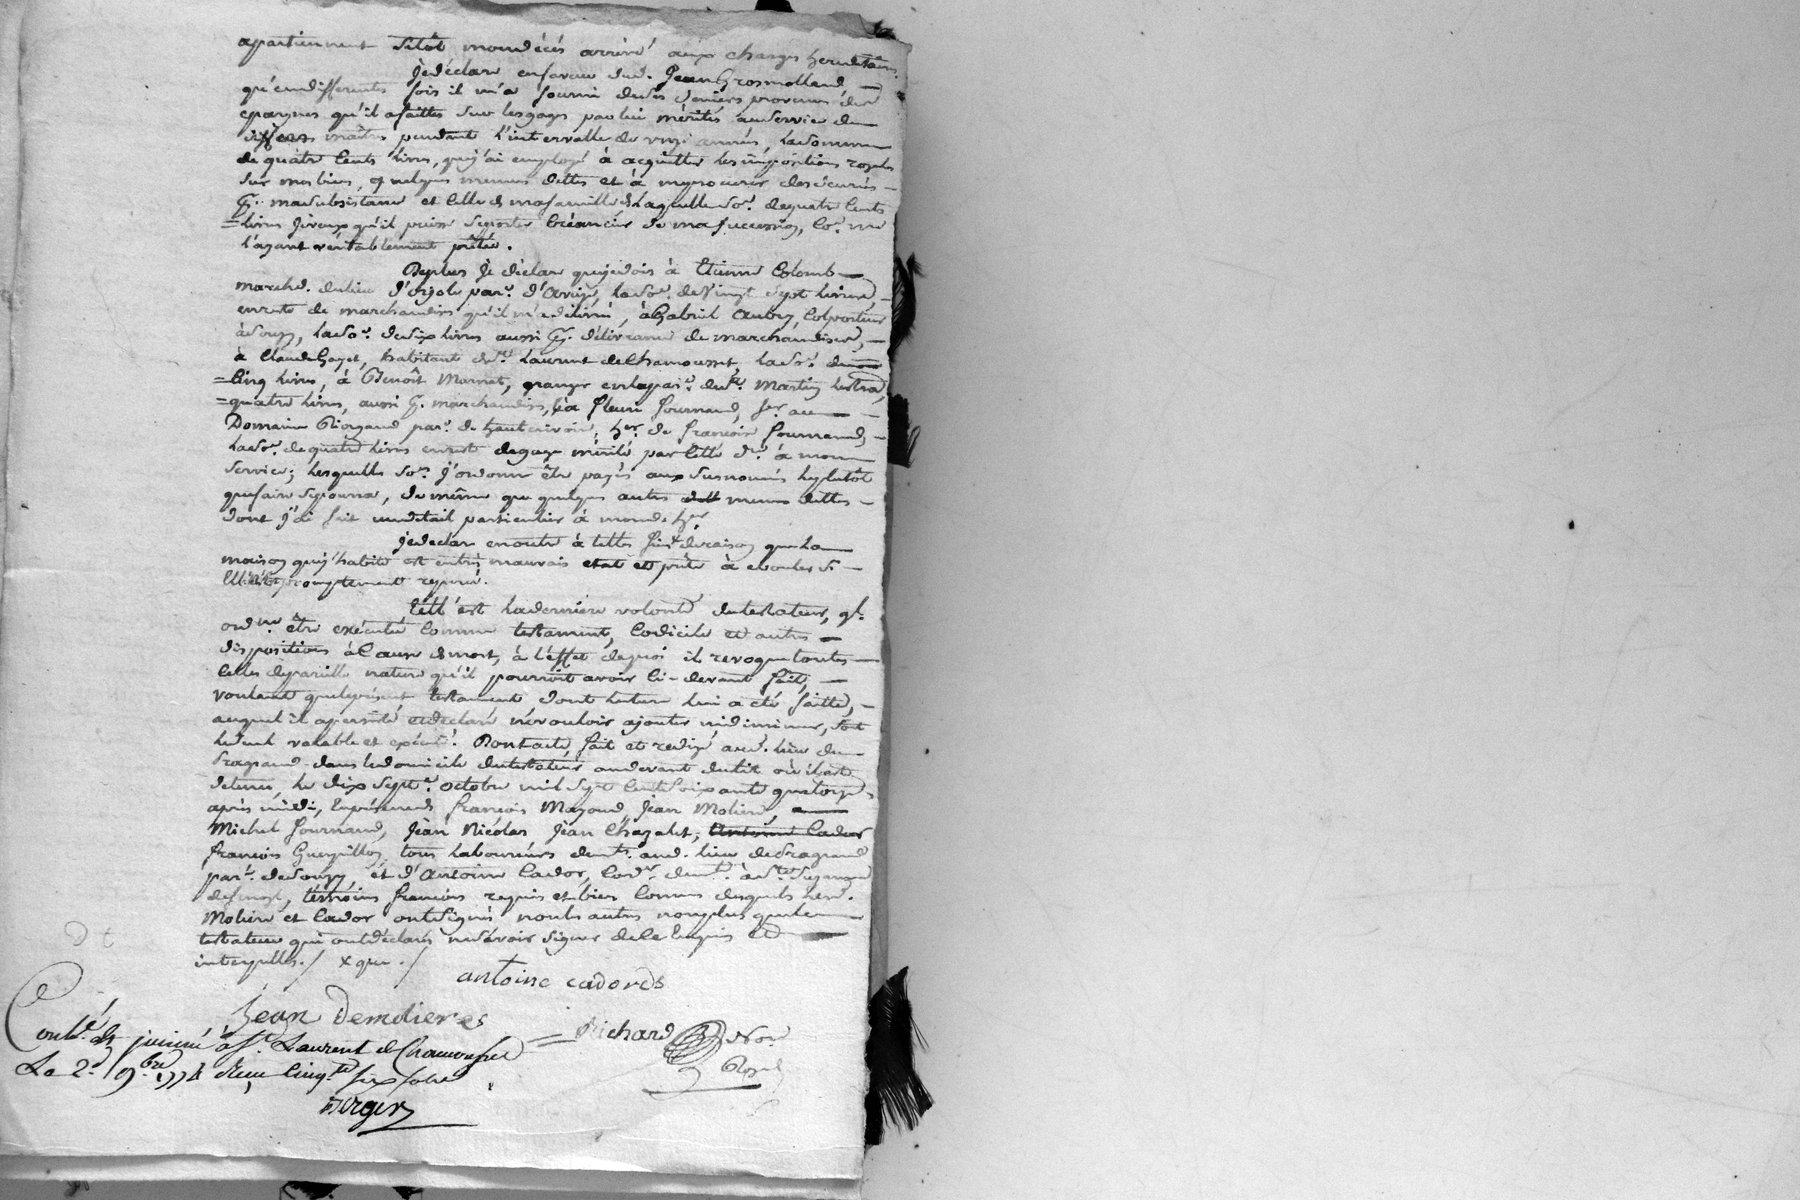 apartiennent sitôt mon décés arrivé aux charges hereditaires.
Je déclare en faveur dud. Jean Grosmolland,
qu'en differentes fois il m'a fourni de ses deniers provenus des
epargnes qu'il a faittes sur les gages par lui mérités au service de
differens maîtres pendant l'intervalle de onze années, la somme
de quatre cents livres, que j'ai employé à acquitter les impositions royales
sur mes biens, quelques menues dettes et à me procurer des denrées
pr. ma subsistance et celle de ma famille de laquelle so. de quatre cents
livres je veux qu'il puisse se porter créancier de ma succession, co. me
l'ayant véritablement prêtée.
De plus je déclare que je dois à Etienne Colomb
marchd. du lieu d'orjole parr. d'Aveize, la so. de vingt sept livres,
en reste de marchandises qu'il m'a delivré, à Gabriel Aubry, colporteur
à Souzy, la so. de dix livres aussi pr. délivrance de marchandises,
à Claude Goyet, habitant de st. Laurent de Chamousset, la so. de
cinq livres, à Benoît Mornet, granger en la parr. de st. Martin lestra,
quatre livres, aussi pr. marchandises, et à fleurie fournand, fer. au
Domaine Giorgand parr. de hauterivoire, her. de francois fournand
la so. de quatre livres en reste de gage mérité par cette dr. à mon
service; lesquelles so. j'ordonne être payés aux susnommés le plutôt
que faire se pourra, de même que quelques autres menues dettes
dont j'ai fait un détail particulier à mond. her.
Je déclare en outre à telles fins de raison que la
maison que j'habite est en très mauvais etat et prête à ecouler si
elle n'est promptement reparée.
Telle est la derniere volonté du testateur, ql.
ordne. être exécutée comme testament, codicile et autres
dispositions à cause de mort, à l'effet de quoi il revoque toutes
celles de pareille nature qu'il pourroit avoir ci-devant fait,
voulant que le présent testament, dont lecture lui a été faitte,
auquel il a persisté et déclaré n'e vouloir ajouter ni diminuer, soit
le seul valable et exécuté. Dont acte, fait et redigé aud. lieu de
fragnand dans le domicile du testateur au devant du lit où il est
detenu, le dix sept. octobre mil sept cent soixante quatorze
après midi, En présence de francois Mazond, Jean Moliere,
Michel fournand, Jean Nicolas Jean Chazalet, Antoine Cador
francois Guerpillon, tous laboureurs demts. aud. lieu de fragnand
parr. de Souzy, et d'Antoine Cador, cordr. demt. à
de fins, témoins francois requis et bien connus desquels lesd.
Moliere et Cador ont signés non les autres non plus que le
testateur qui ont déclarés ne savoir signer de ce enquis et
interpellés./ x que ./
antoine cadores
Jean Demolieres
Richard Nore.
Royal
Contlé. et insinué à St. Laurent de Chamousset
Le 2d. 9bre. 1774 Reçu cinqte. six sols
Berger